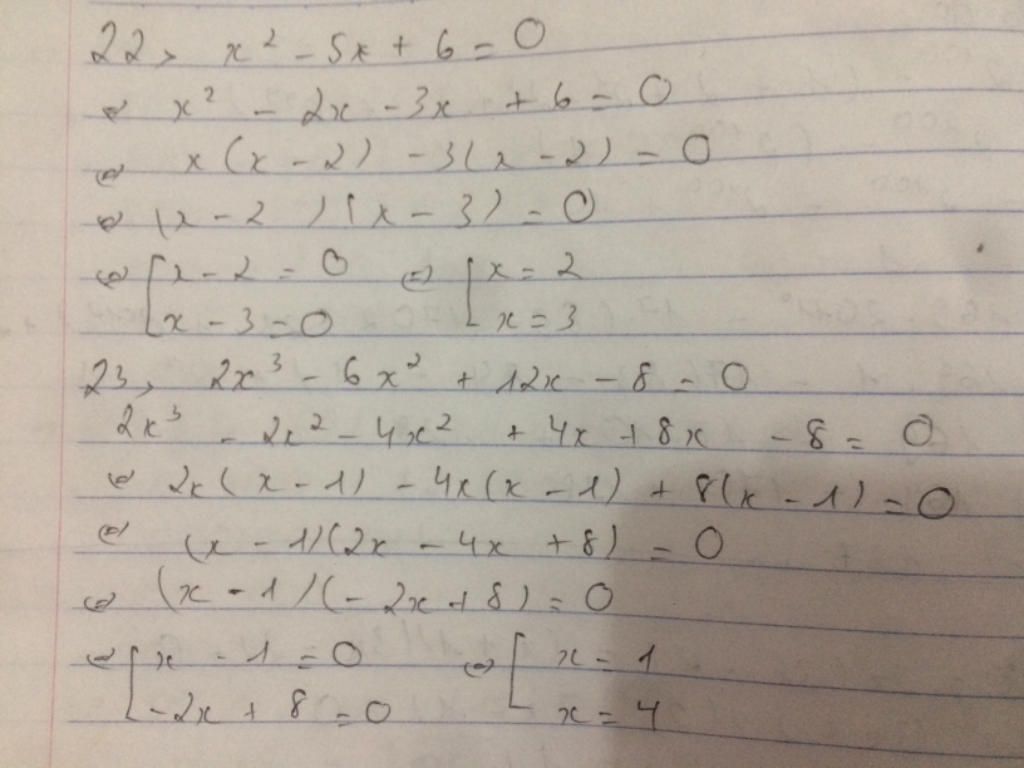 22, x² - 5x + 6 = 0
⇔ x² - 2x - 3x + 6 = 0
⇔ x(x - 2) - 3(x - 2) = 0
⇔ (x - 2)(x - 3) = 0
⇔ [x - 2 = 0 ⇔ [x = 2
x - 3 = 0 x = 3
23, 2x³ - 6x² + 12x - 8 = 0
2x³ - 2x² - 4x² + 4x + 8x - 8 = 0
⇔ 2x(x - 1) - 4x(x - 1) + 8(x - 1) = 0
⇔ (x - 1)(2x - 4x + 8) = 0
⇔ (x - 1)(-2x + 8) = 0
⇔ [x - 1 = 0 ⇔ [x = 1
-2x + 8 = 0 x = 4